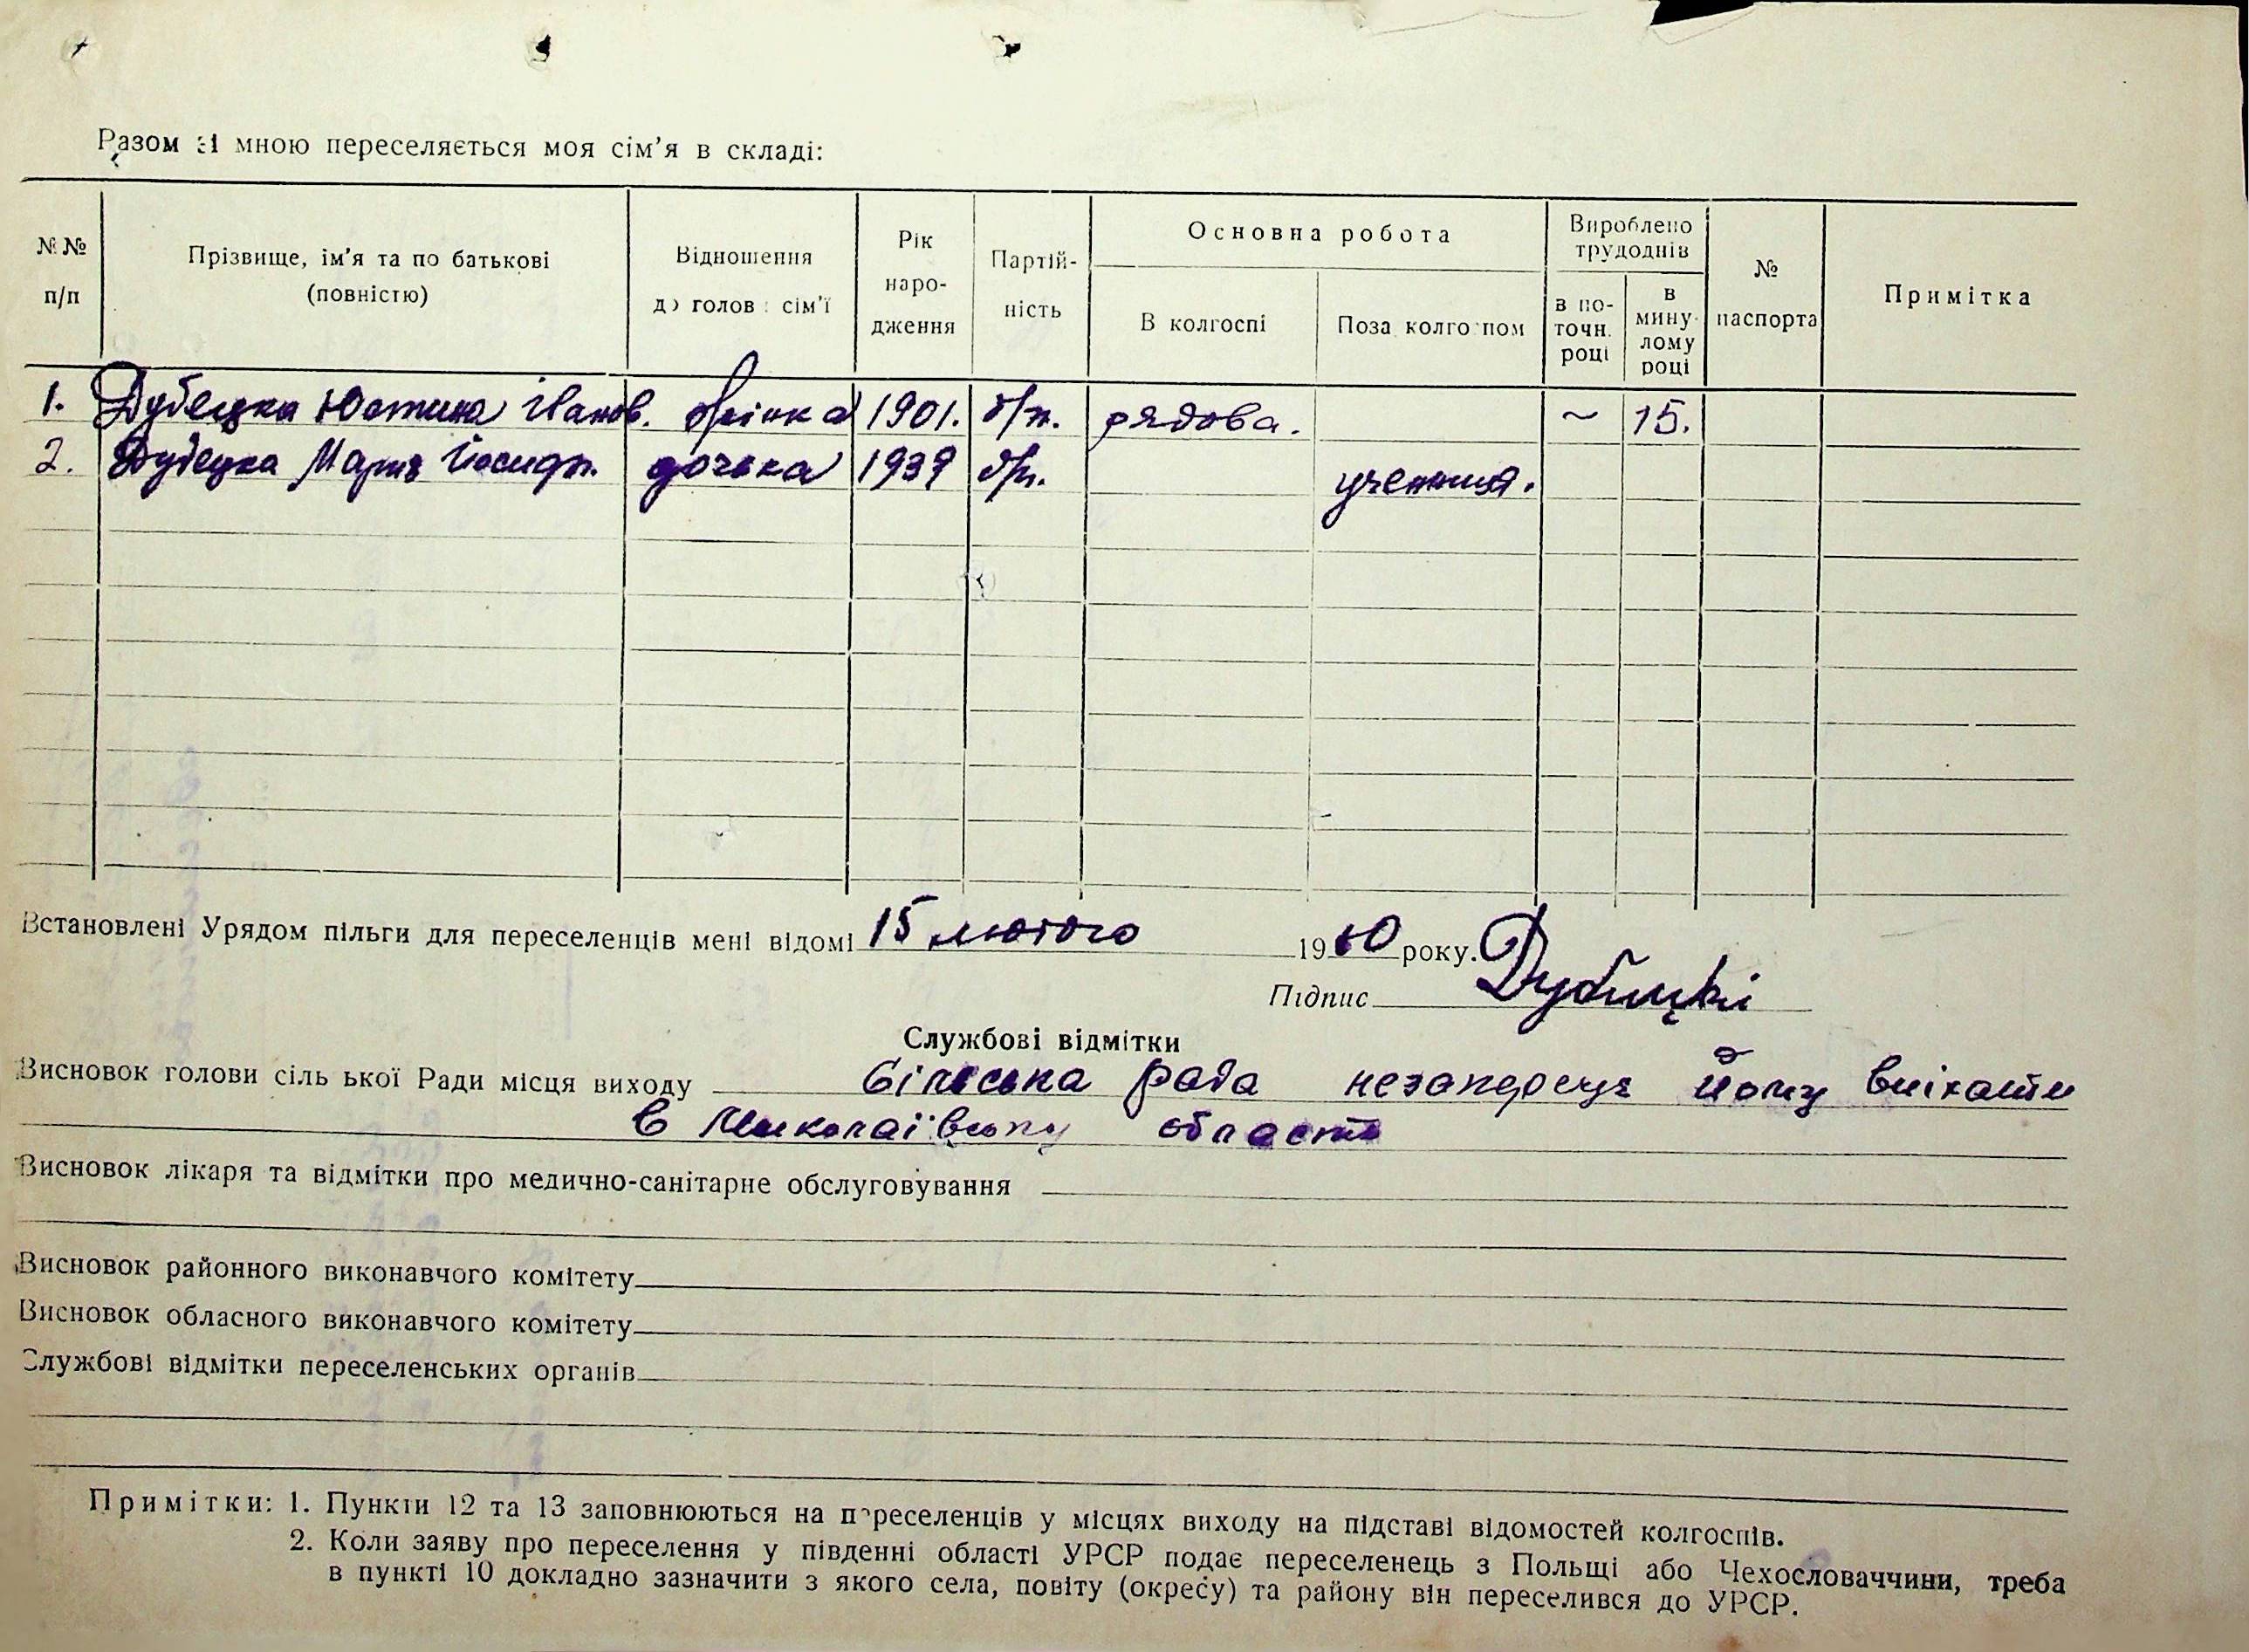 Разом зі мною переселяється моя сім'я в складі:
№№ п/п
Прізвище, ім'я та по батькові (повністю)
Відношення до голови сім'ї
Рік народження
Партійність
Основна робота
В колгоспі
Поза колгоспом
Вироблено трудоднів
в поточн. році
в минулому році
№ паспорта
Примітка
1. Дубецка Юстина Іванов. жінка 1901. б/п. рядова. ~ 15.
2. Дубецка Марія Йосифп. дочька 1939 б/п. учениця.
Встановлені Урядом пільги для переселенців мені відомі 15 лютого 1960 року.
Підпис Дубицкі
Службові відмітки
Висновок голови сільської Ради місця виходу Сільська рада незаперечує йому виїхати
в Миколаївську область
Висновок лікаря та відмітки про медично-санітарне обслуговування
Висновок районного виконавчого комітету
Висновок обласного виконавчого комітету
Службові відмітки переселенських органів
Примітки: 1. Пункти 12 та 13 заповнюються на переселенців у місцях виходу на підставі відомостей колгоспів.
2. Коли заяву про переселення у південні області УРСР подає переселенець з Польщі або Чехословаччини, треба
в пункті 10 докладно зазначити з якого села, повіту (окресу) та району він переселився до УРСР.